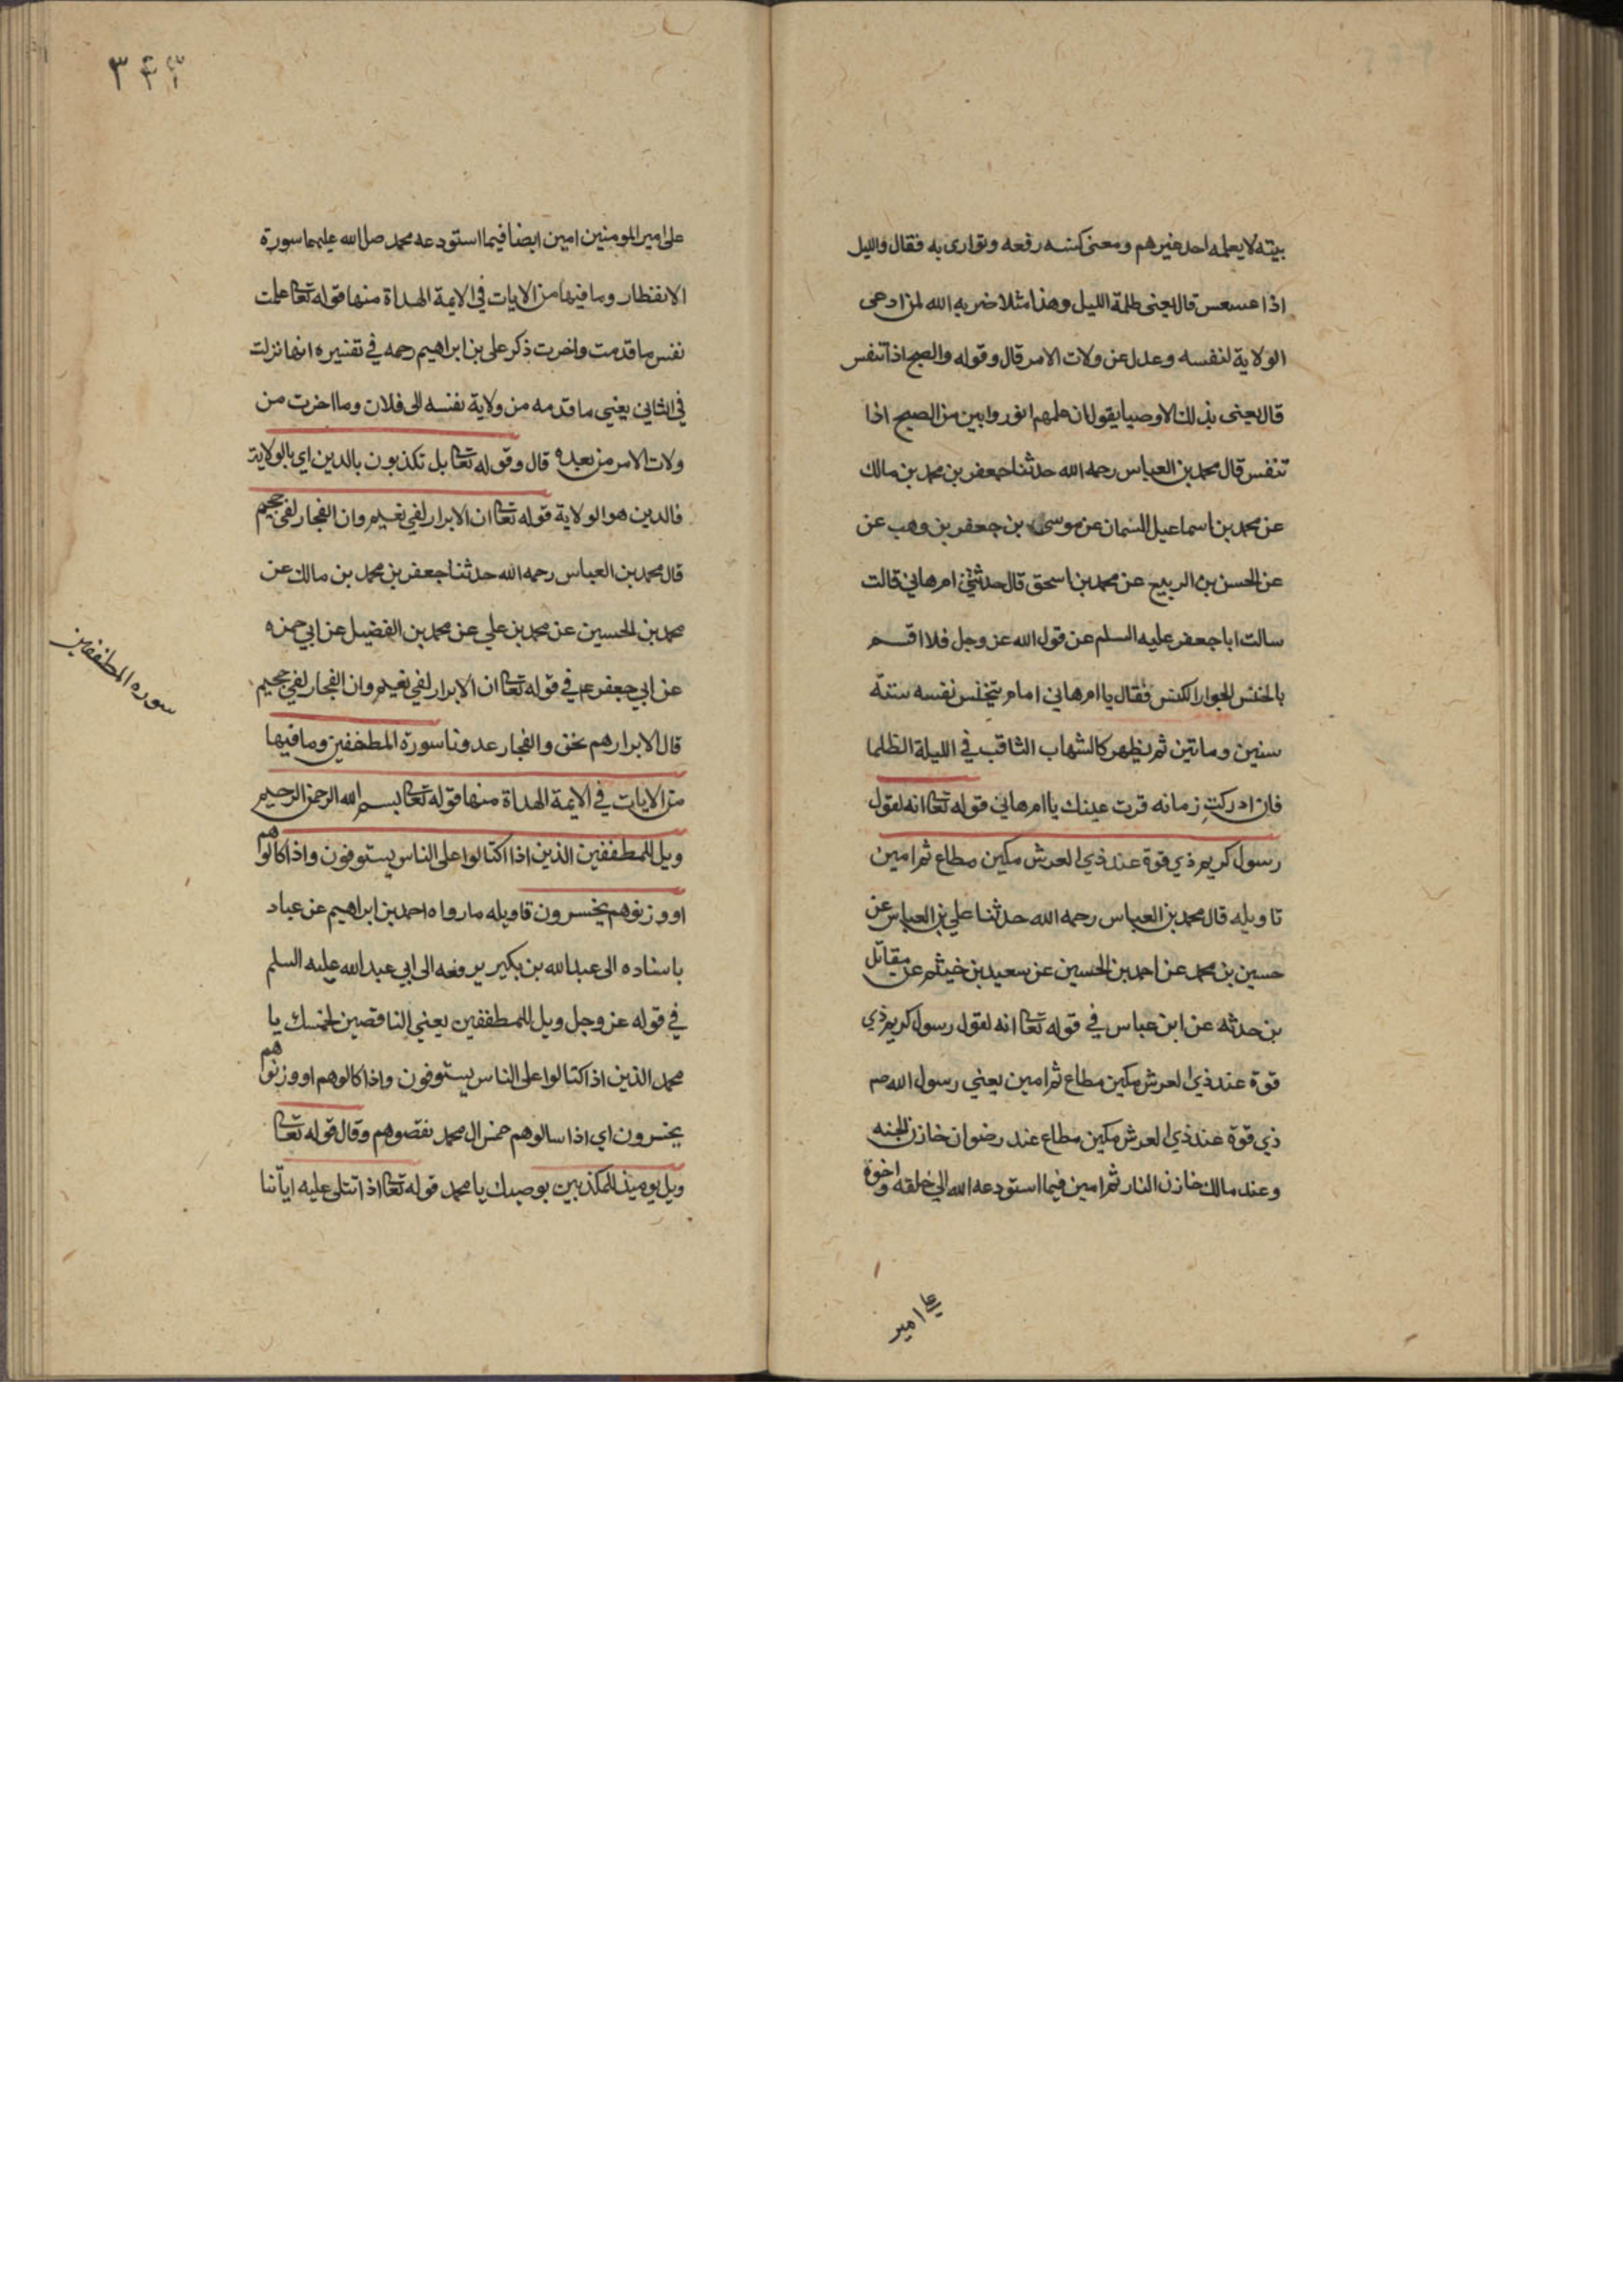 بيته لا يعلمه احد غيرهم ومعنى كنسه رفعه وتوارى به فقال والليل
اذا عسعس قال يعنى ظلمة الليل وهذا مثلا ضربه الله لمن ادعى
الولاية لنفسه وعدل عن ولات الامر قال وقوله والصبح اذا تنفس
قال يعنى بذلك الاوصيا يقول ان علمهم انور وابين من الصبح اذا
تنفس قال محمد بن العباس رحمه الله حدثنا جعفر بن محمد بن مالك
عن محمد بن اسماعيل السمان عن موسى بن جعفر بن وهب عن
عن الحسن بن الربيع عن محمد بن اسحق قال حدثتني ام هاني قالت
سالت ابا جعفر عليه السلم عن قول الله عز وجل فلا اقسم
بالخنس الجوار الكنس فقال يا ام هاني امام يتخنس نفسه سنة
سنين وماتين ثم يظهر كالشهاب الثاقب في الليلة الظلما
فان ادركتِ زمانه قرت عينك يا ام هاني قوله تعا انه لقول
رسول كريم ذي قوة عند ذي العرش مكين مطاع ثم امين
تاويله قال محمد بن العباس رحمه الله حدثنا علي بن العباس عن
حسين بن محمد عن احمد بن الحسين عن سعيد بن خيثم عن مقاتل
بن حدثه عن ابن عباس في قوله تعا انه لقول رسول كريم ذي
قوة عند ذي العرش مكين مطاع ثم امين يعني رسول الله صم
ذي قوة عند ذي العرش مكين مطاع عند رضوان خازن الجنه
وعند مالك خازن النار ثم امين فيما استودعه الله الي خلقه واخوة
على امير
٣٤٣
على امير المومنين امين ايضا فيما استودعه محمد صل الله عليهما سورة
الانفطار وما فيها من الايات في الايمة الهداة منها قوله تعا علمت
نفس ما قدمت واخرت ذكر على بن ابراهيم رحمه في تفسيره انها نزلت
في الثاني يعني ما قدمه من ولاية نفسه الى فلان وما اخرت من
ولات الامر من بعده قال وقوله تعا بل تكذبون بالدين اي بالولاية
فالدين هو الولاية قوله تعا ان الابرار لفي نعيم وان الفجار لفي جحيم
قال محمد بن العباس رحمه الله حدثنا جعفر بن محمد بن مالك عن
محمد بن الحسين عن محمد بن علي عن محمد بن الفضيل عن ابي حمزه
عن ابي جعفر ع في قوله تعا ان الابرار لفي نعيم وان الفجار لفي جحيم
قال الابرار هم نحن والفجار عدونا سورة المطففين وما فيها
من الايات في الايمة الهداة منها قوله تعا بسم الله الرحمن الرحيم
ويل للمطففين الذين اذا اكتالوا على الناس يستوفون واذا كالوهم
او وزنوهم يخسرون تاويله ما رواه احمد بن ابراهيم عن عباد
باسناده الى عبد الله بن بكير يرفعه الى ابي عبد الله عليه السلم
في قوله عز وجل ويل للمطففين يعني الناقصين لخمسك يا
محمد الذين اذا اكتالوا على الناس يستوفون واذا كالوهم او وزنوهم
يخسرون اي اذا سالوهم خمس ال محمد نقصوهم وقال قوله تعا
ويل يوميذ للمكذبين بوصيك يا محمد قوله تعا اذا تتلى عليه اياتنا
سوره المطففين